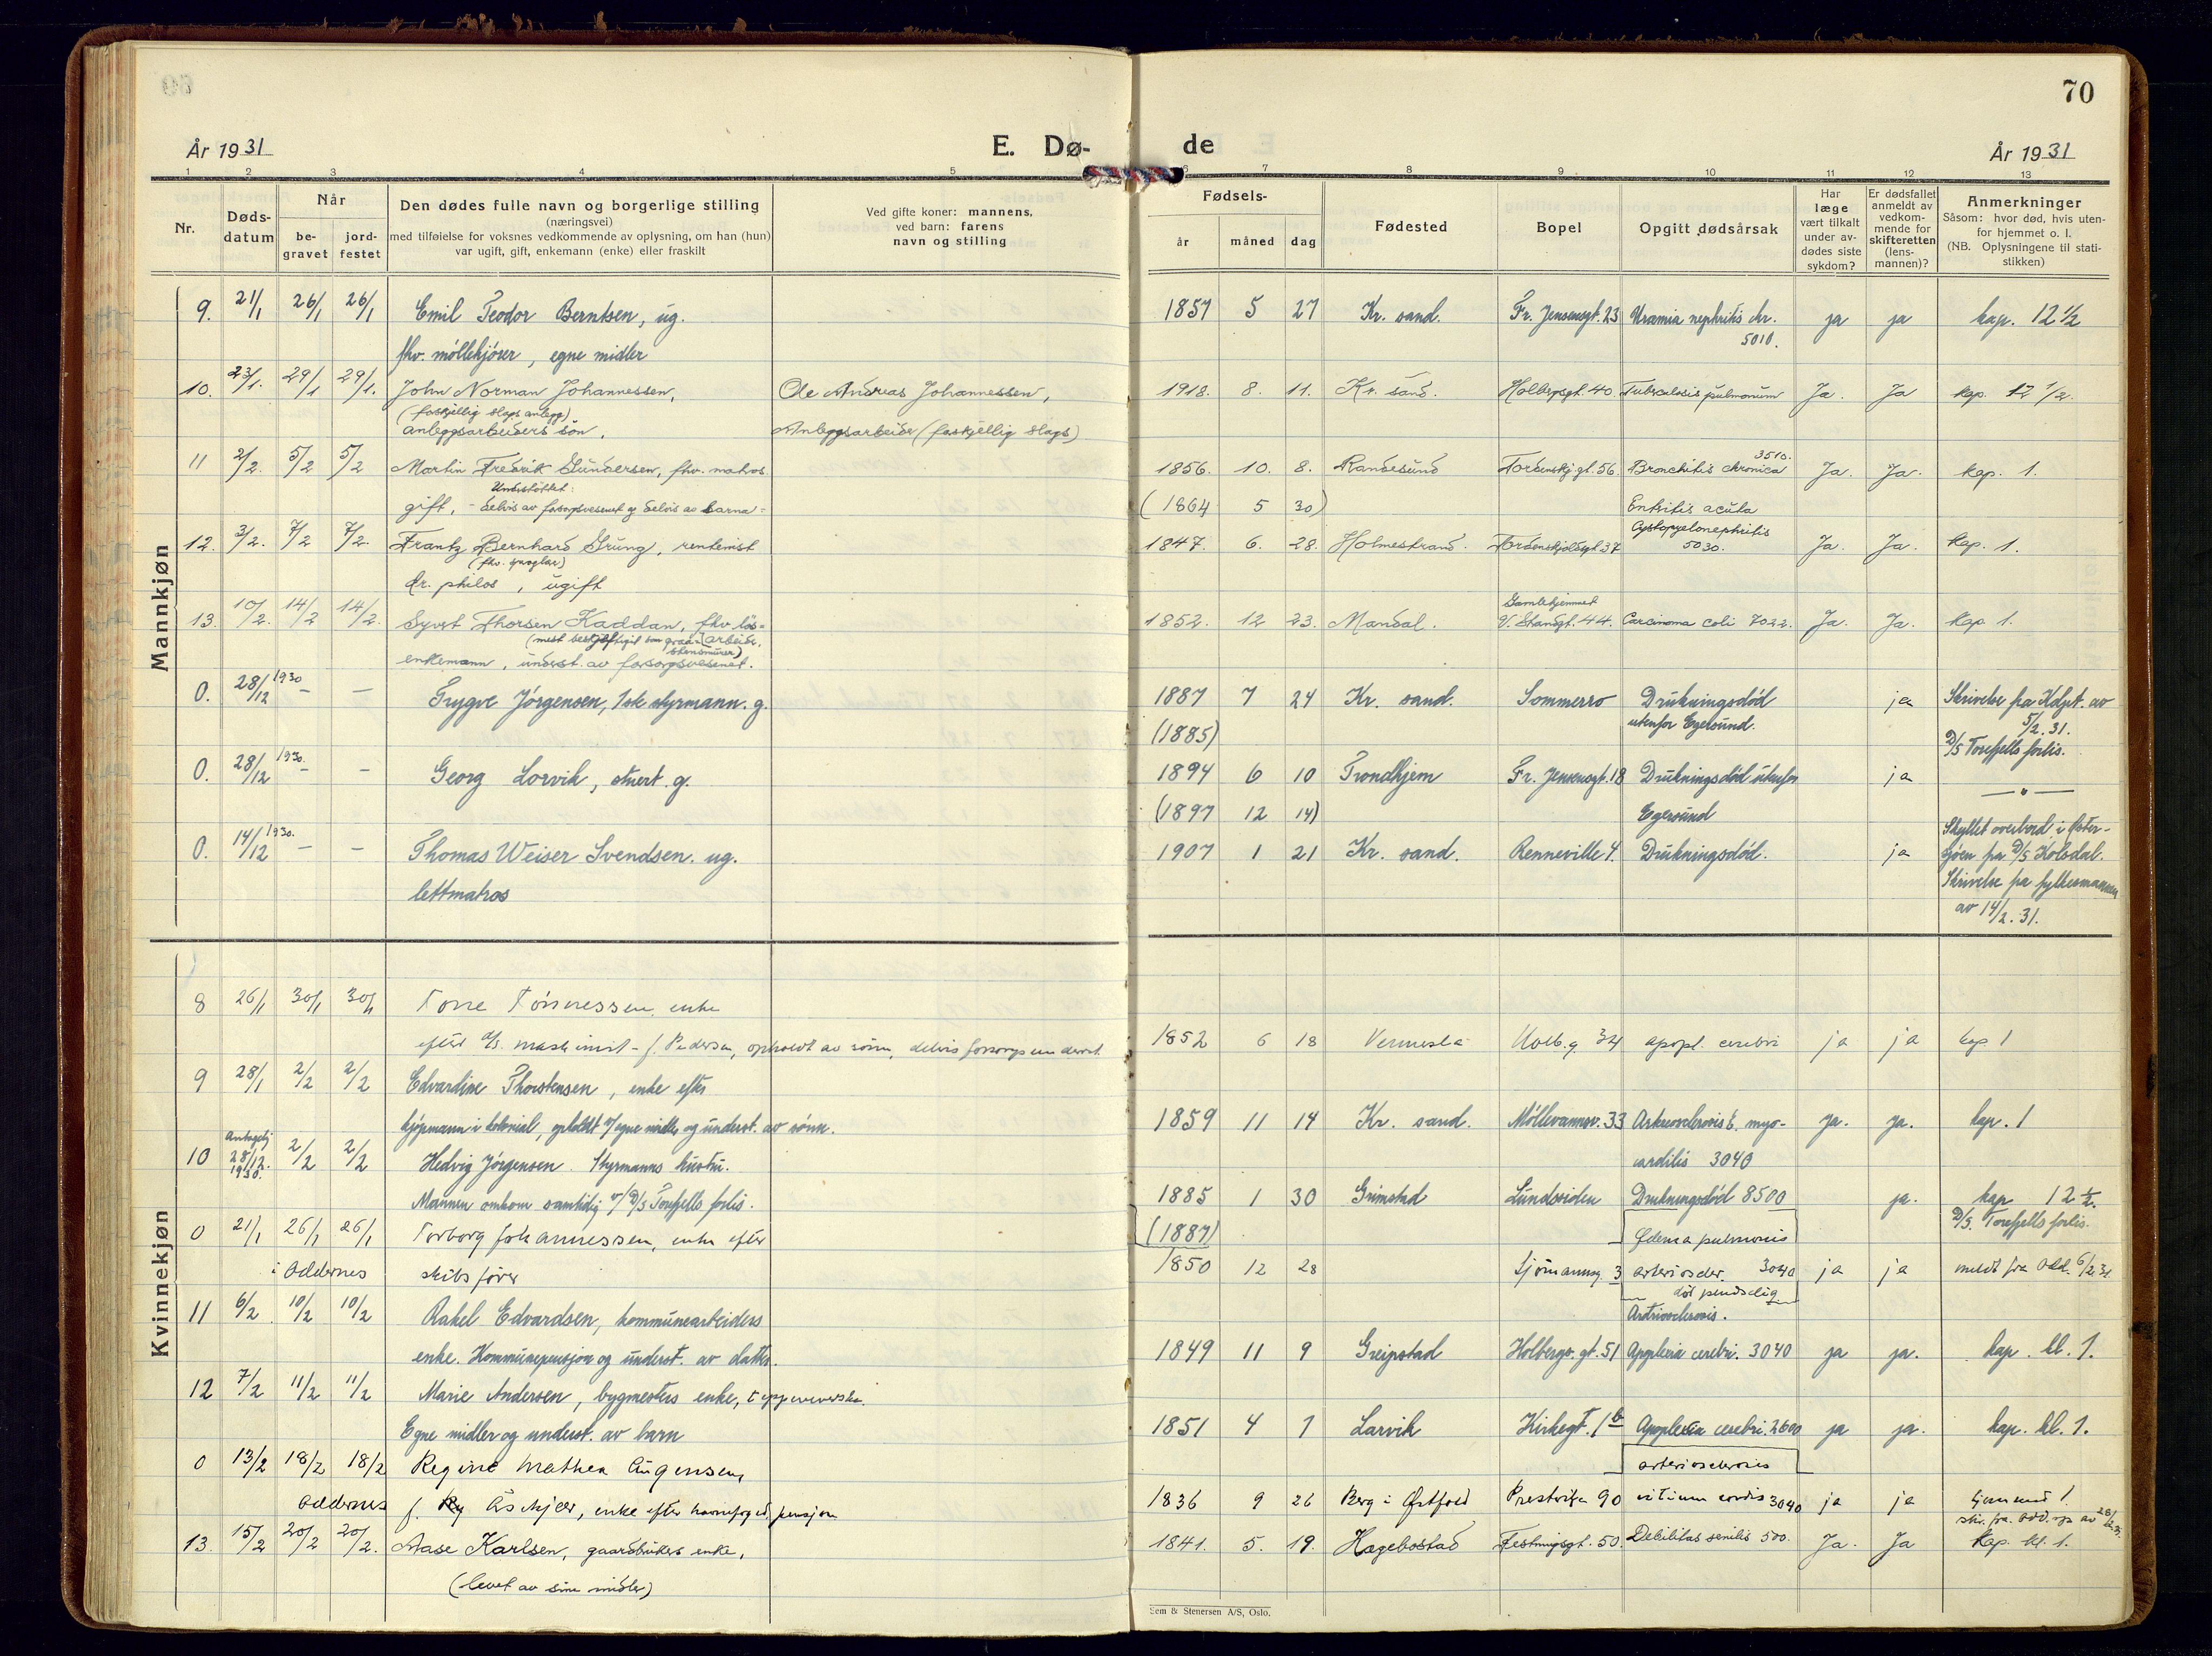 70
År 1931
E. Dø-
de
År 1931
1 2 3 4 5 6 7 8 9 10 11 12 13
Nr.
Døds-
datum
Når
be-
gravet
jord-
festet
Den dødes fulle navn og borgerlige stilling
(næringsvei)
med tilføielse for voksnes vedkommende av oplysning, om han (hun)
var ugift, gift, enkemann (enke) eller fraskilt
Ved gifte koner: mannens,
ved barn: farens
navn og stilling
Fødsels-
år måned dag
Fødested
Bopel
Opgitt dødsårsak
Har
læge
vært tilkalt
under av-
dødes siste
sykdom?
Er dødsfallet
anmeldt av
vedkom-
mende for
skifteretten
(lens-
mannen)?
Anmerkninger
Såsom: hvor død, hvis uten-
for hjemmet o. l.
(NB. Oplysningene til stati-
stikken)
Mannkjøn
9. 21/1 26/1 26/1 Emil Teodor Berntsen, ug. 1857 5 27 Kr. sand. Fr. Jensensgt. 23 Uramia nephritis chr. ja ja kap. 12 1/2
fhv. møllekjører, egne midler 5010.
10. 23/1. 29/1 29/1. John Norman Johannessen, Ole Andreas Johannessen, 1918. 8. 11. Kr. sand. Holbergsgt. 40. Tuberculosis pulmonum Ja. Ja kap. 12 1/2.
(forskjellig slags anlegg)
anleggsarbeiders søn. Anleggsarbeider (forskjellig slags)
11 2/2. 5/2 5/2 Martin Fredrik Gundersen, fhv. matros 1856. 10. 8. Randesund Tordenskj.gt. 56. Bronchitis chronica 3510. Ja. Ja. kap. 1.
Understøttet:
gift, - delvis av forsorgsvesenet og delvis av barna - (1864 5 30) Entritis acuta
12. 3/2. 7/2 7/2. Frantz Bernhard Grung, rentenist 1847. 6. 28. Holmestrand. Tordenskjoldsgt 37 Cystopyelonephritis 5030. Ja. Ja. Kap. 1.
dr. philos, ugift
13. 10/2. 14/2 14/2. Syvert Thorsen Kaddan, fhv. løs- 1852. 12 23. Mandal. Gamlehjemmet V. Strandgt. 44. Carcinoma coli 7022. Ja. Ja. Kap 1.
arbeider,
stensmurer)
enkemann, underst. av forsorgsvesenet.
0. 28/12 1930 - - Trygve Jørgensen, 1ste styrmann. g. 1887 7 24 Kr. sand. Sommerro Drukningsdød ja Skrivelse fra Hdpt. av
(1885) utenfor Egersund. 5/2. 31.
D/S Torefjells forlis.
0. 28/12 1930. - - Georg Lorvik, stuert. g. 1894 6 10 Trondhjem Fr. Jensensgt. 18 Drukningsdød utenfor ja — " —
(1897 12 14) Egersund
0. 14/12 1930. - - Thomas Weiser Svendsen. ug. 1907 1 21 Kr. sand. Renneville 4. Drukningsdød. ja Skyllet overbord i Øster-
sjøen fra D/S Kolsdal.
lettmatros Skrivelse fra fylkesmannen
av 14/2. 31.
Kvinnekjøn
8 26/1 30/1 30/1 Torre Tönnessen, enke
efter maskinist - f. Pedersen, opholdt av sönn, delvis forsorgsunderst. 1852 6 18 Vennesla Holb.g. 34 apopl. cerebri ja ja kap 1
9 28/1 2/2 2/2 Edvardine Thorstensen, enke efter
kjøpmann i kolonial, opholdt v/ egne midler og underst. av sønn. 1859 11 14 Kr. sand. Møllevannsv. 33 Arteriosclerosis & myo- ja. ja. kap. 1
carditis 3040
10 Antagelig 28/12. 1930. 2/2 2/2 Hedvig Jørgensen. Styrmanns hustru. 1885 1 30 Grimstad Lundsiden Drukningsdød 8500 ja. kap 12 1/2.
Mannen omkom samtidig v/ D/S Torefjells forlis. (1887) D/S. Torefjells forlis.
0 21/1 26/1 26/1 Torborg Johannessen, enke efter Ødema pulmonis
i Oddernes skibsfører 1850 12 28 Sjömannsg. 3 arterioscler. 3040 ja ja meldt fra Odd. 6/2 31
död pludselig
11 6/2 10/2 10/2 Rakel Edvardsen, kommunearbeiders Arteriosclerosis.
enke. Kommunepensjon og underst. av datter. 1849 11 9 Greipstad Holbergs. gt. 51 Apoplexia cerebri. 3040 ja ja. kap. kl. 1.
12 7/2 11/2 11/2 Marie Andersen, bygmesters enke, teppeveverske.
Egne midler og underst. av barn 1851 4 7 Larvik Kirkegt. 1 b Apoplexia cerebri. 2600 ja ja. kap. kl. 1.
0 13/2 18/2 18/2 Regine Mathea Augensen, arteriosclerosis
Oddernes f. Aschjær, enke efter havnefoged, pensjon 1836 9 26 Berg i Østfold Prestvika 90 vitium cordis 3040 ja ja hjemmed 1.
skr. fra Odd.
13. 15/2 20/2 20/2. Aase Karlsen, gaardbrukers enke, 1841. 5. 19. Hægebostad Festningsgt. 50. Debilitas senilis 500. Ja. Ja Kap. kl. 1.
(levet av sine midler)
Sem & Stenersen A/S, Oslo.